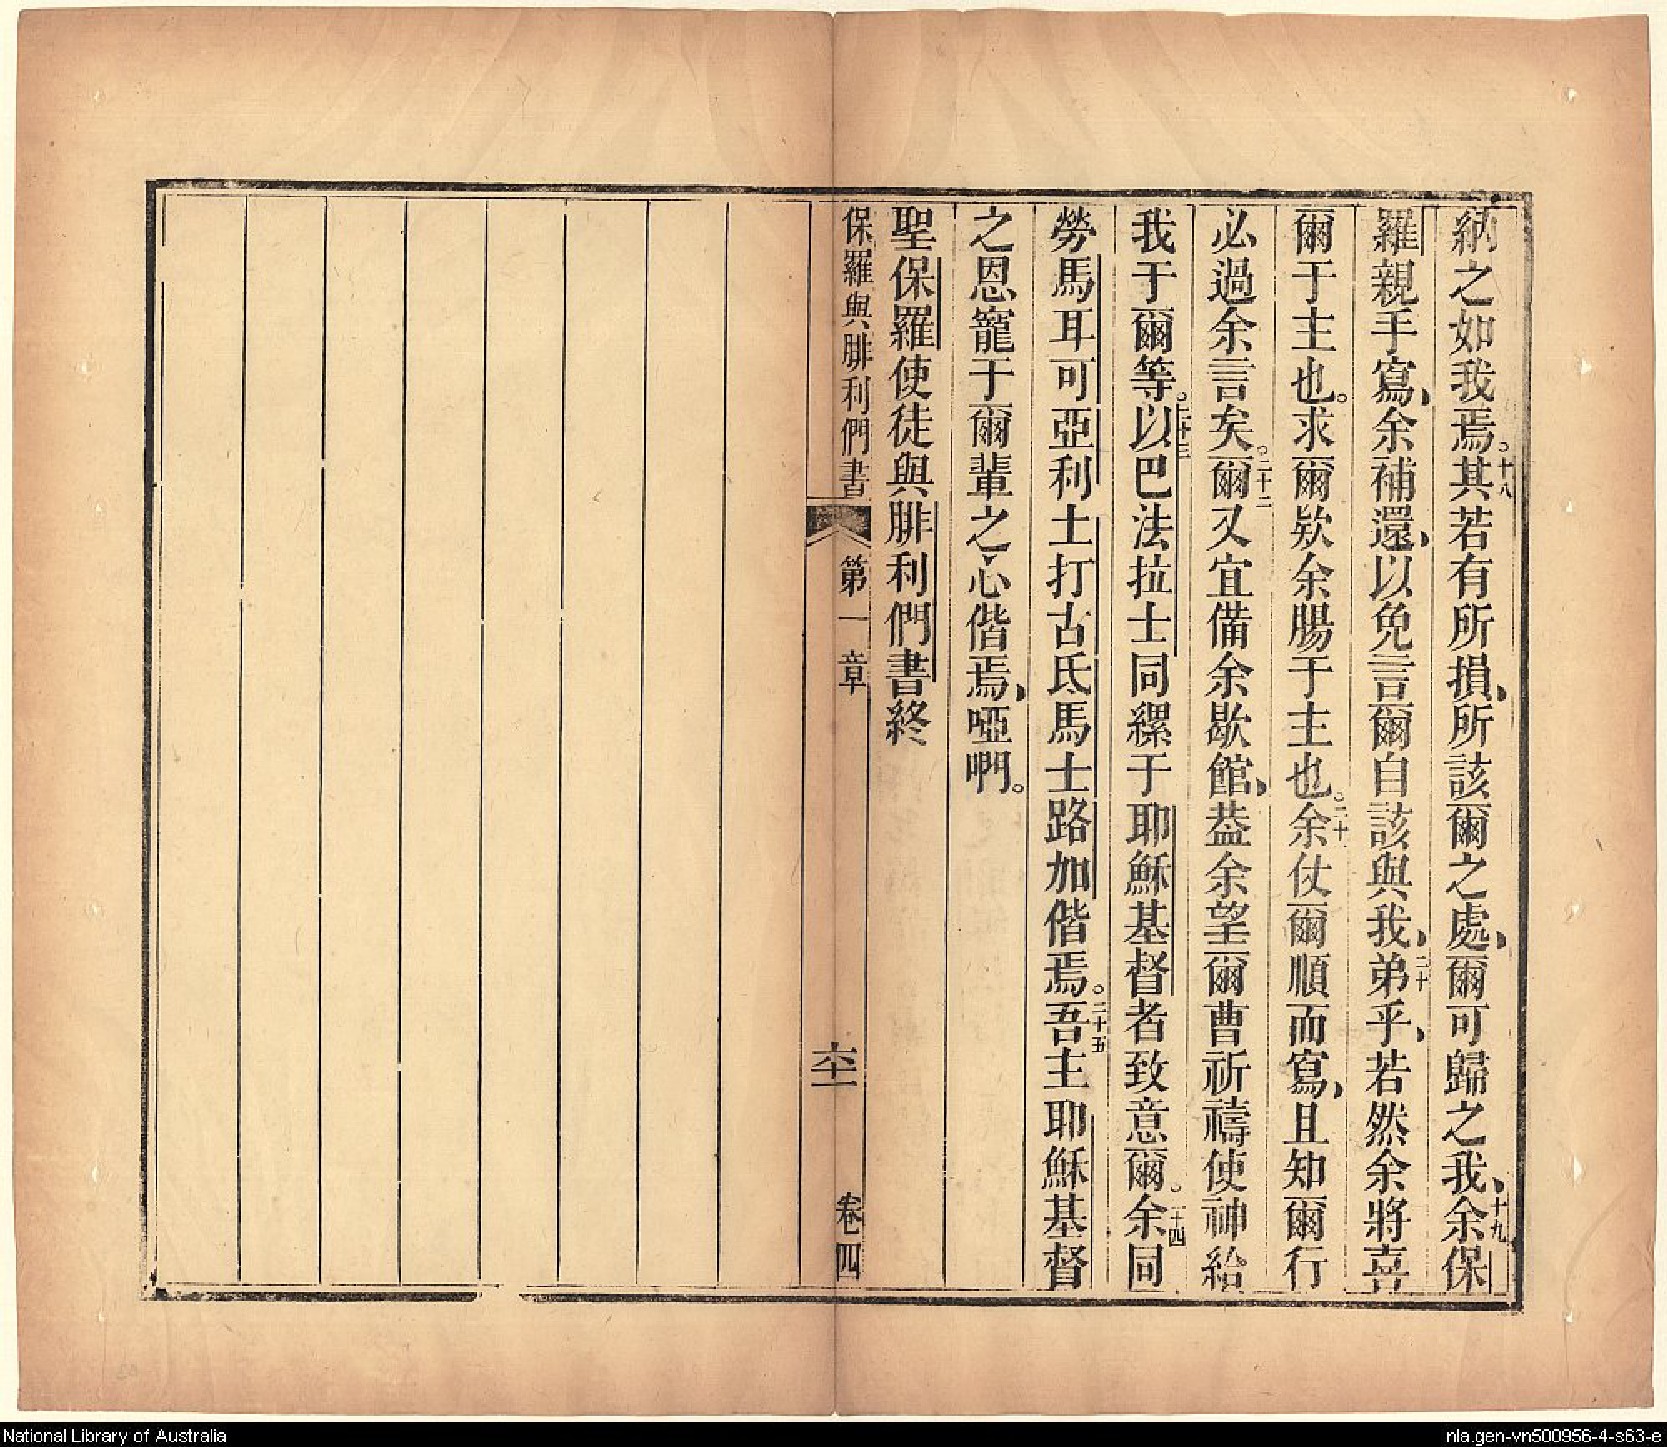 納之如我焉。十八其若有所損、所該爾之處、爾可歸之我、十九余保
羅親手寫、余補還、以免言爾自該與我、二十弟乎、若然余將喜
爾于主也。求爾歎余腸于主也。二十一余仗爾順而寫、且知爾行
必過余言矣。二十二爾又宜備余歇館、葢余望爾曹祈禱使神給
我于爾等。二十三以巴法拉士同縲于耶穌基督者致意爾。二十四余同
勞馬耳可亞利士打古氐馬士路加偕焉。二十五吾主耶穌基督
之恩寵于爾輩之心偕焉、啞啊。
聖保羅使徒與腓利們書終
保羅與腓利們書 第一章 卷四
National Library of Australia
nla.gen-vn500956-4-s63-e